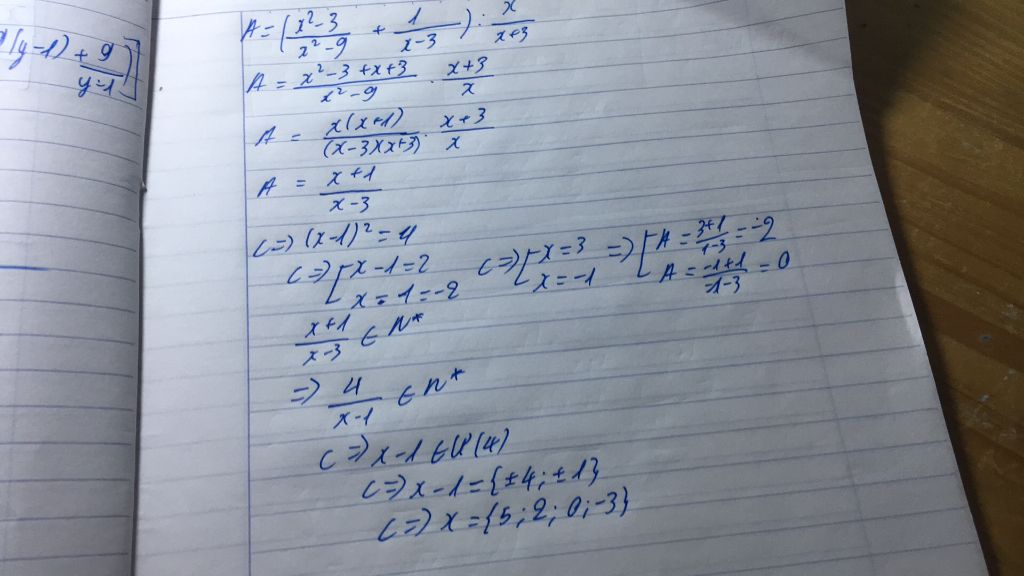 (y-1) + 9/(y-1)]
A = (x²-3/x²-9 + 1/x-3) : x/x+3
A = x²-3+x+3/x²-9 · x+3/x
A = x(x+1)/(x-3)(x+3) · x+3/x
A = x+1/x-3
<=> (x-1)² = 4
<=> [x-1=2 <=> [x=3 => [A = 3+1/1-3 = -2
x-1=-2 x=-1 A = -1+1/-1-3 = 0
x+1/x-3 ∈ N*
=> 4/x-1 ∈ N*
<=> x-1 ∈ Ư(4)
<=> x-1 = {±4; ±1}
<=> x = {5; 2; 0; -3}